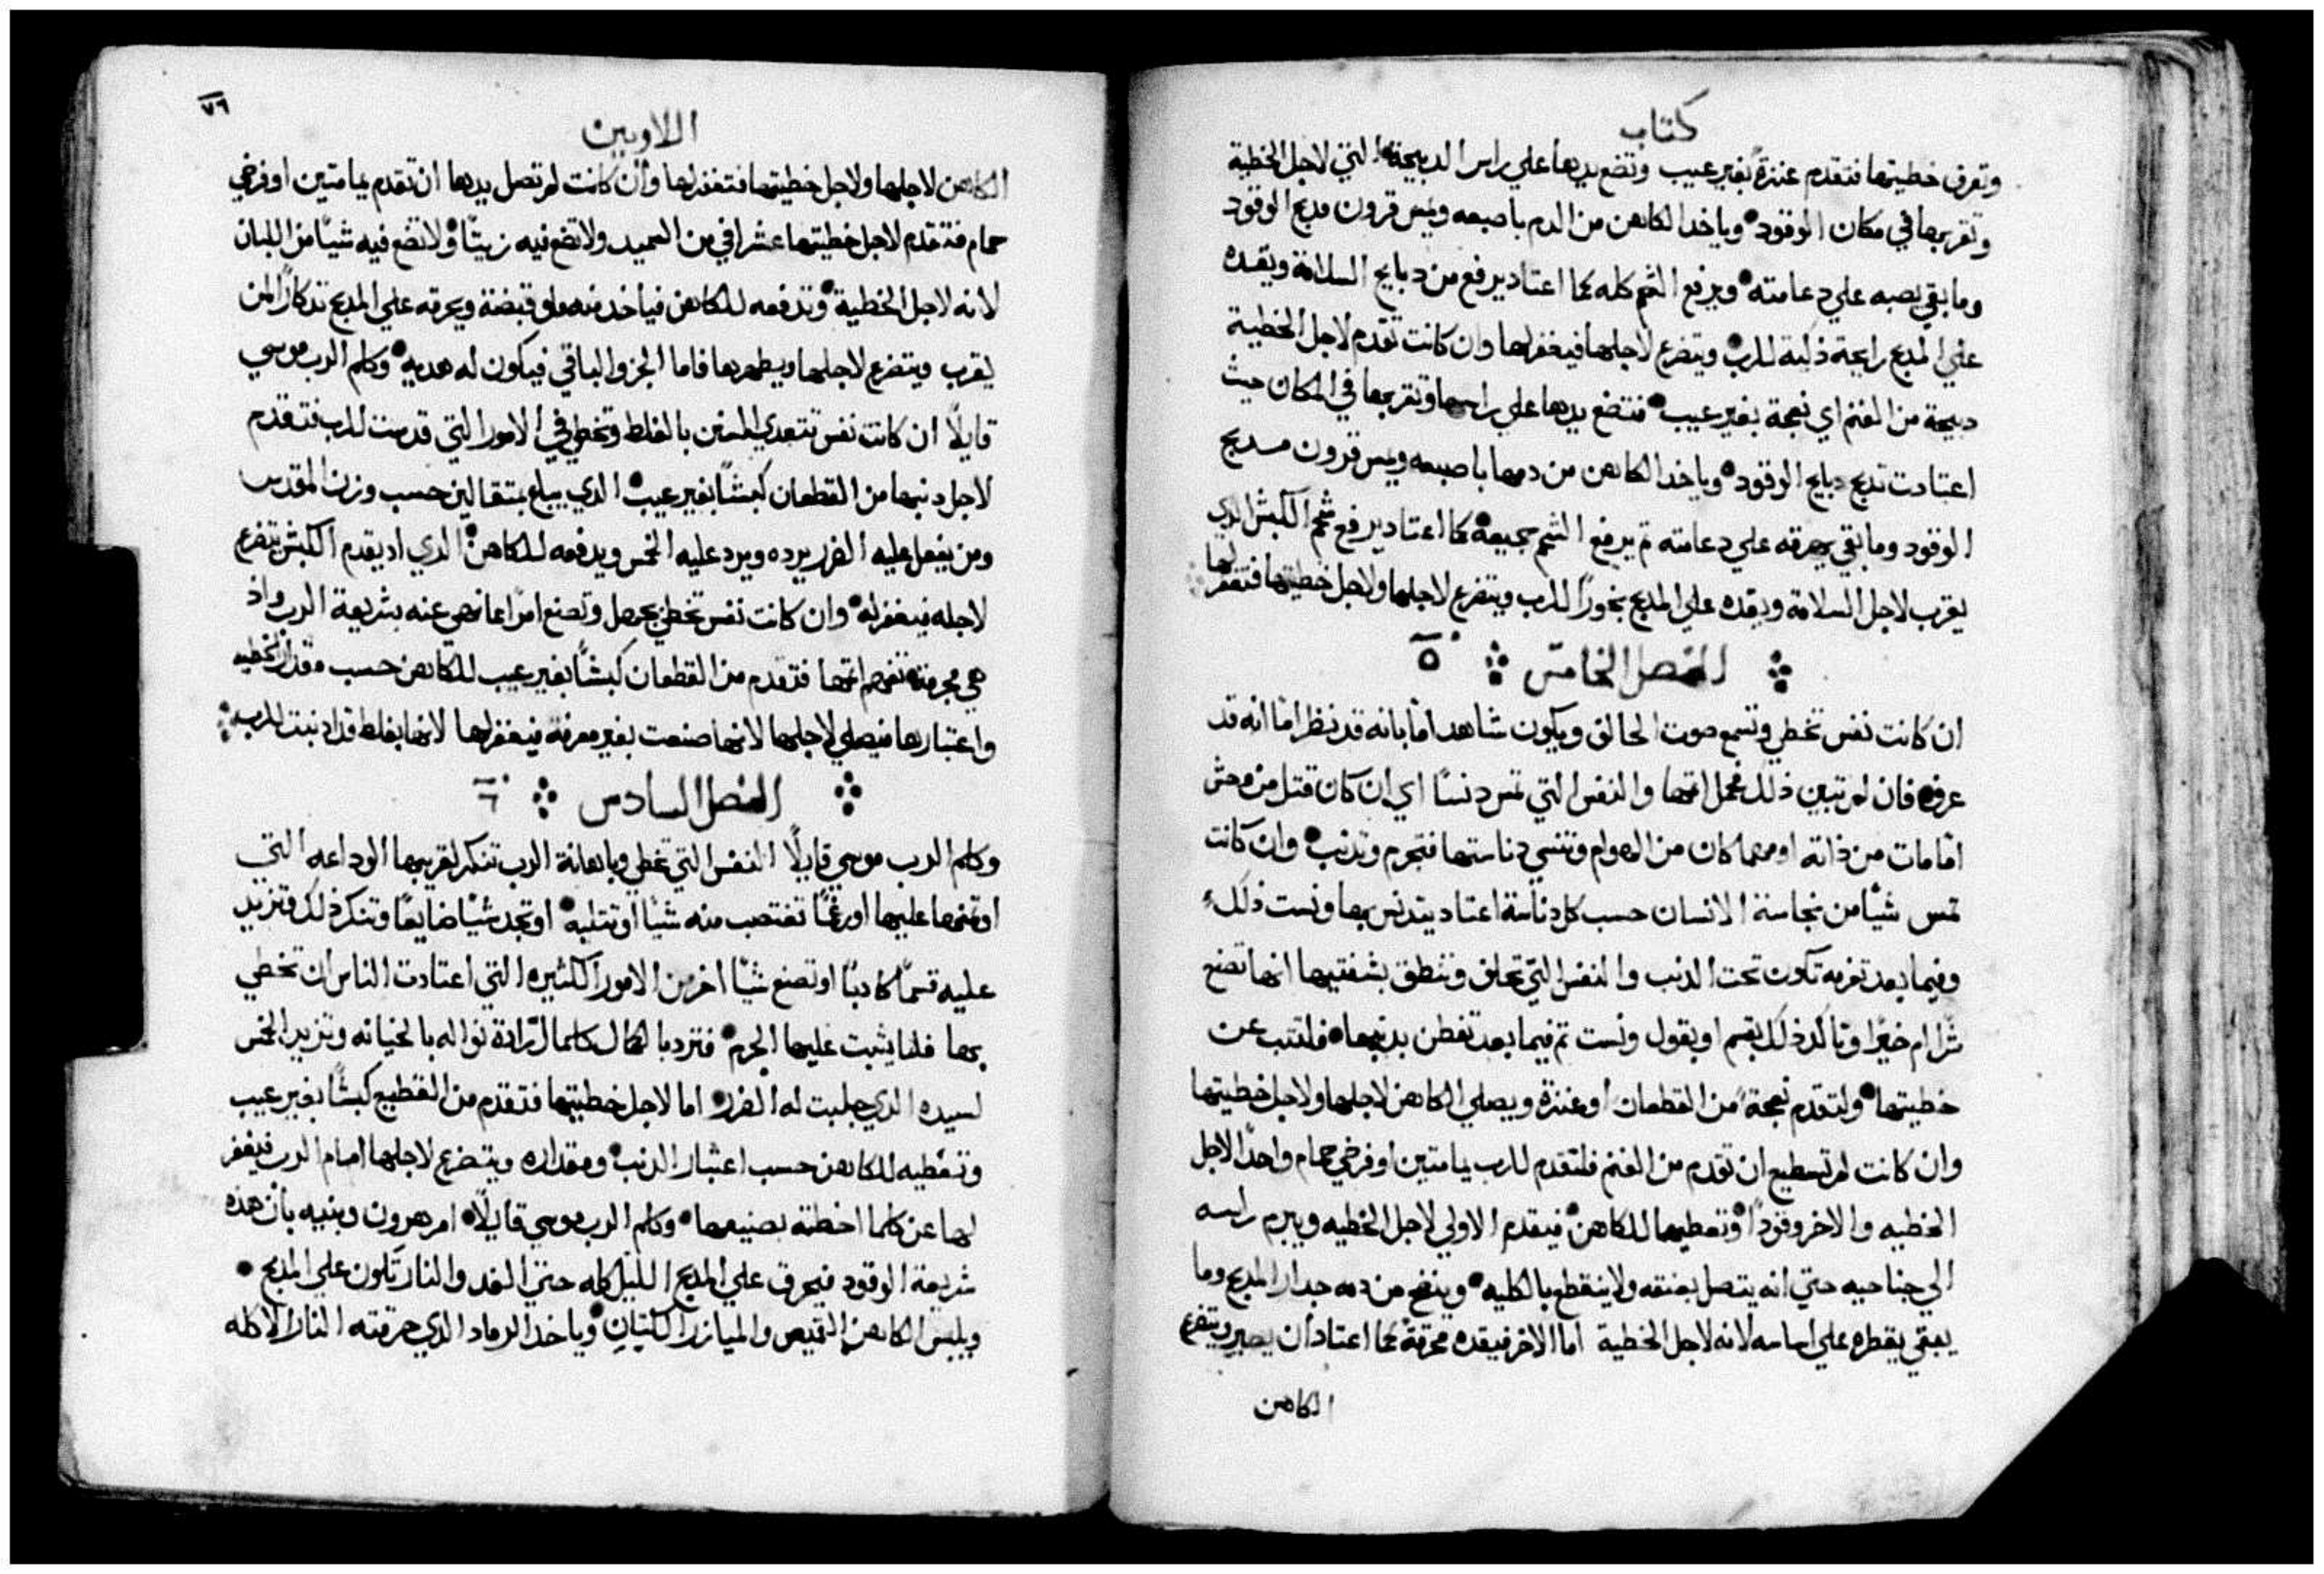 كتاب
وتعرف خطيتها فتقدم عنزة بغير عيب وتضع يدها علي راس الدبيحة التي لاجل الخطية
وتقربها في مكان الوقود وياخد الكاهن من الدم باصبعه ويمس قرون مدبح الوقود
وما بقي يصبه علي دعامته ويرفع الشحم كله كما اعتاد يرفع من دبايح السلامة ويقده
علي المدبح رايحة ذكية للرب ويتضرع لاجلها فيغفر لها وان كانت تقدم لاجل الخطية
دبيحة من الغنم اي نعجة بغير عيب فتضع يدها علي راسها وتقربها في المكان حيث
اعتادت تدبح دبايح الوقود وياخد الكاهن من دمها باصبعه ويمس قرون مدبح
الوقود وما بقي يهرقه علي دعامته ثم يرفع الشحم جميعه كما اعتاد يرفع شحم الكبش الدي
يقرب لاجل السلامة ويقده علي المدبح بخورًا للرب ويتضرع لاجلها ولاجل خطيتها فتغفر لها
الفصل الخامس ٥
ان كانت نفس تخطي وتسمع صوت الحالق ويكون شاهد اما بانه قد نظر اما انه قد
عرف فان لم تبين ذلك تحمل اتمها والنفس التي تمس دنسًا اي ان كان قتل من وحش
اما مات من ذاته او مهما كان من الهوام وتنسي دناستها فتجرم وتدنب وان كانت
تمس شيًا من نجاسة الانسان حسب كل دناسة اعتاد يتدنس بها ونست ذلك
وفيما بعد تعرفه تكون تحت الدنب والنفس التي تحلف وتنطق بشفتيها انها تصنع
شرًا ام خيرًا وتاكد ذلك بقسم او بقول ونست ثم فيما بعد تفطن بدنبها فلتتب عن
خطيتها ولتقدم نعجة من القطعان او عنزة ويصلي الكاهن لاجلها ولاجل خطيتها
وان كانت لم تسطيع ان تقدم من الغنم فلتقدم للرب يمامتين او فرخي حمام واحدًا لاجل
الخطيه والاخر وقودًا وتعطيهما للكاهن فيقدم الاولي لاجل الخطيه ويبرم راسه
الي جناحيه حتي انه يتصل بعنقه ولا ينقطع بالكليه وينضح من دمه جدار المدبح وما
يبقي يقطره علي اساسه لانه لاجل الخطية اما الاخر فيقده محرقة كما اعتاد ان يصير ويتضرع
الكاهن
٧٦
اللاويين
الكاهن لاجلها ولاجل خطيتها فتغفر لها وان كانت لم تصل يدها ان تقدم يمامتين او فرخي
حمام فتقدم لاجل خطيتها عشر افي من السميد ولا تضع فيه زيتًا ولا تضع فيه شيًا من اللبان
لانه لاجل الخطية وتدفعه للكاهن فياخد منه ملو قبضة ويحرقه علي المدبح تدكارًا لمن
يقرب ويتضرع لاجلها ويطهرها فاما الجزو الباقي فيكون له هديه وكلم الرب موسي
قايلًا ان كانت نفس تتعدي السنن بالغلط وتخطي في الامور التي قدست للرب فتقدم
لاجل دنبها من القطعان كبشًا بغير عيب الدي يبلغ بمتقالين حسب وزن المقدس
ومن يفعل عليه الضرر يرده ويرد عليه الخمس ويدفعه للكاهن الدي اد يقدم الكبش يتضرع
لاجله فيغفر له وان كانت نفس تخطي بجهل وتصنع امرًا مما نهي عنه بشريعة الرب واذ
هي مجرمة تفهم اتمها فتقدم من القطعان كبشًا بغير عيب للكاهن حسب مقدار الخطيه
واعتبارها فيصلي لاجلها لانها صنعت بغير معرفة فيغفر لها لانها بغلط قد ادنبت للرب
الفصل السادس ٦
وكلم الرب موسي قايلًا النفس التي تخطي وباهانة الرب تنكر لقريبها الوداعه التي
اوتمنها عليها او رغمًا تغتصب منه شيًا او تتلبه او تجد شيًا ضايعًا وتنكر ذلك وتزيد
عليه قسمًا كادبًا او تصنع شيًا اخر من الامور الكثيره التي اعتادت الناس ان تخطي
بها فلما يثبت عليها الجرم فترد بالكمال كلما ارادة نواله بالخيانه وتزيد الخمس
لسيده الدي جلبت له الضرر اما لاجل خطيتها فتقدم من القطيع كبشًا بغير عيب
وتعطيه للكاهن حسب اعتبار الدنب ومقداره ويتضرع لاجلها امام الرب فيغفر
لها عن كلما اخطته بصنيعها وكلم الرب موسي قايلًا امر هرون وبنيه بان هذه
شريعة الوقود فيحرق علي المدبح الليل كله حتي الغد والنار تكون علي المدبح
ويلبس الكاهن القميص والميازر الكتان وياخد الرماد الدي حرقته النار الاكله